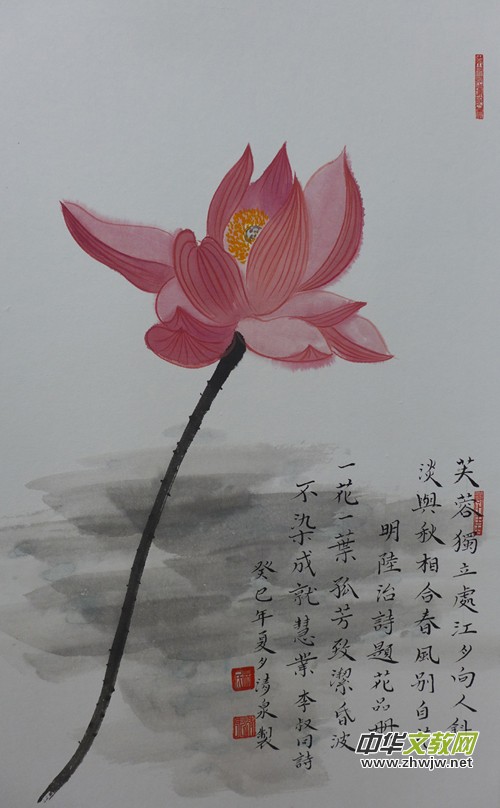 芙蓉獨立處江夕向人斜
淡與秋相合春風別自
明陸治詩題花品冊
一花一葉孤芳致潔昏波
不染成就慧業 李叔同詩
癸巳年夏夕清泉製
中华文教网
www.zhwjw.net